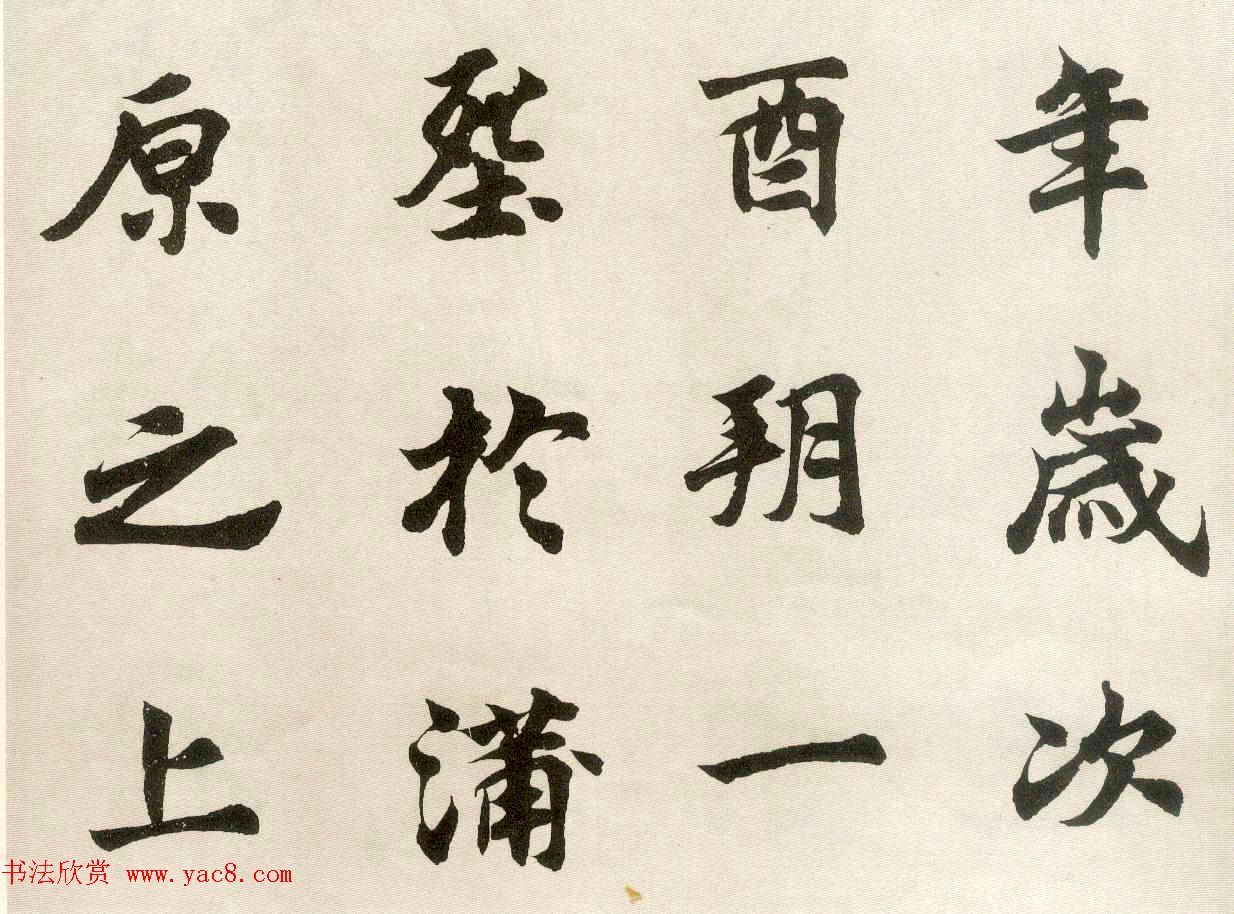 年歲次
酉朔一
於蒲
原之上
书法欣赏 www.yac8.com